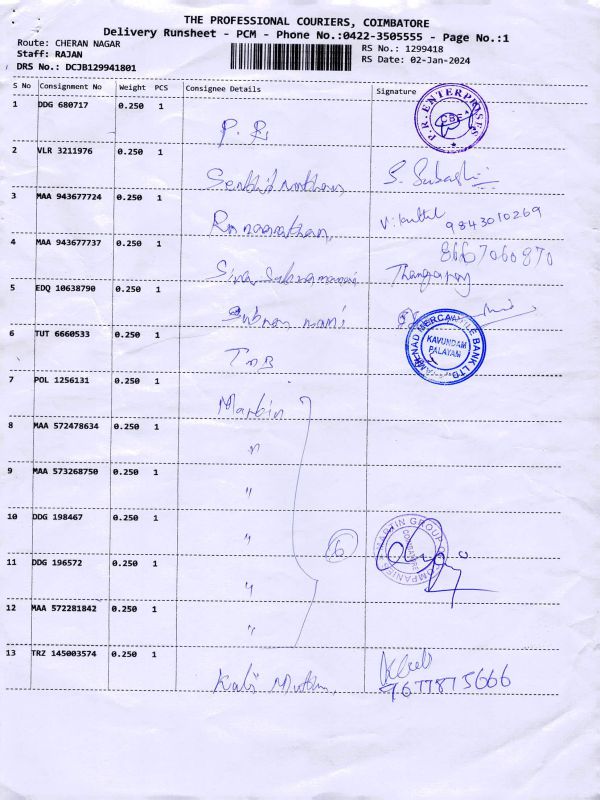 THE PROFESSIONAL COURIERS, COIMBATORE
Delivery Runsheet - PCM - Phone No.:0422-3505555 - Page No.:1
Route: CHERAN NAGAR
RS No.: 1299418
Staff: RAJAN
RS Date: 02-Jan-2024
DRS No.: DCJB129941801
S No Consignment No Weight PCS Consignee Details Signature
1 DDG 680717 0.250 1
P. R
P.R. ENTERPRISES CBE
2 VLR 3211976 0.250 1
Senthil nathan
S. Subash
3 MAA 943677724 0.250 1
Ranganathan
9843010269
4 MAA 943677737 0.250 1
8667060870
Siva Subramani
Thangaraj
5 EDQ 10638790 0.250 1
Subramani
6 TUT 6660533 0.250 1
TMB
TAMILNAD MERCANTILE BANK LTD.
KAVUNDAM
PALAYAM
7 POL 1256131 0.250 1
Martin
8 MAA 572478634 0.250 1
"
9 MAA 573268750 0.250 1
"
10 DDG 198467 0.250 1
"
6
MARTIN GROUP OF COMPANIES
COIMBATORE
11 DDG 196572 0.250 1
"
12 MAA 572281842 0.250 1
"
13 TRZ 145003574 0.250 1
Kali Muthu
7677875666